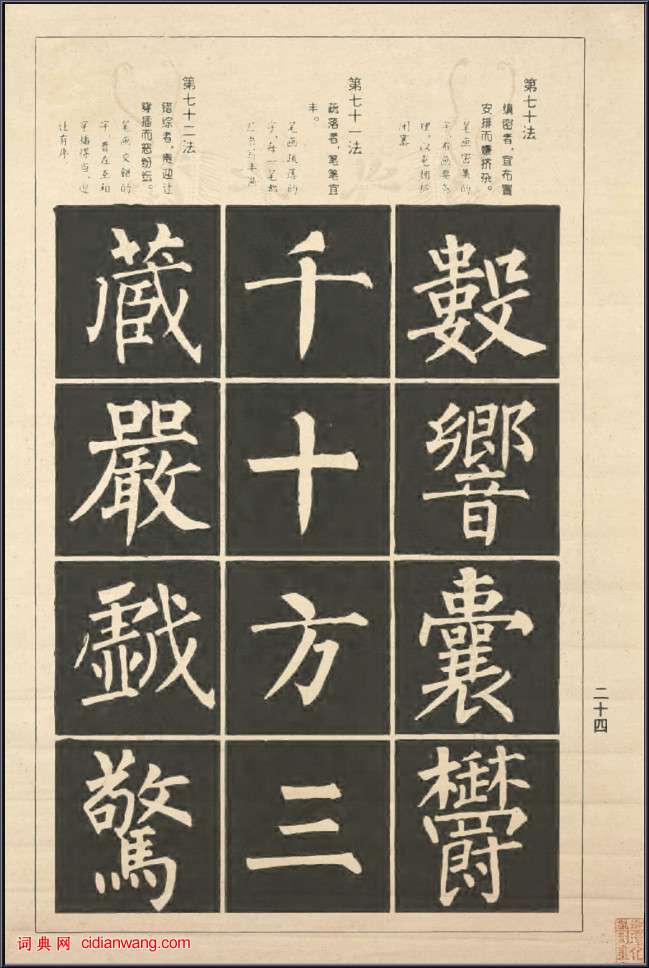 第七十法
缜密者，宜布置
安排而嫌挤杂。
笔画密集的
理，以免拥挤
闭塞
數
響
囊
鬱
第七十一法
疏落者，笔笔宜
丰。
笔画疏落的
字，每一笔都
千
十
方
三
第七十二法
错综者，贵迎让
穿插而恶纷纭。
笔画交错的
字，贵在互相
穿插得当，迎
让有序。
藏
嚴
戲
驚
二十四
词典网 cidianwang.com